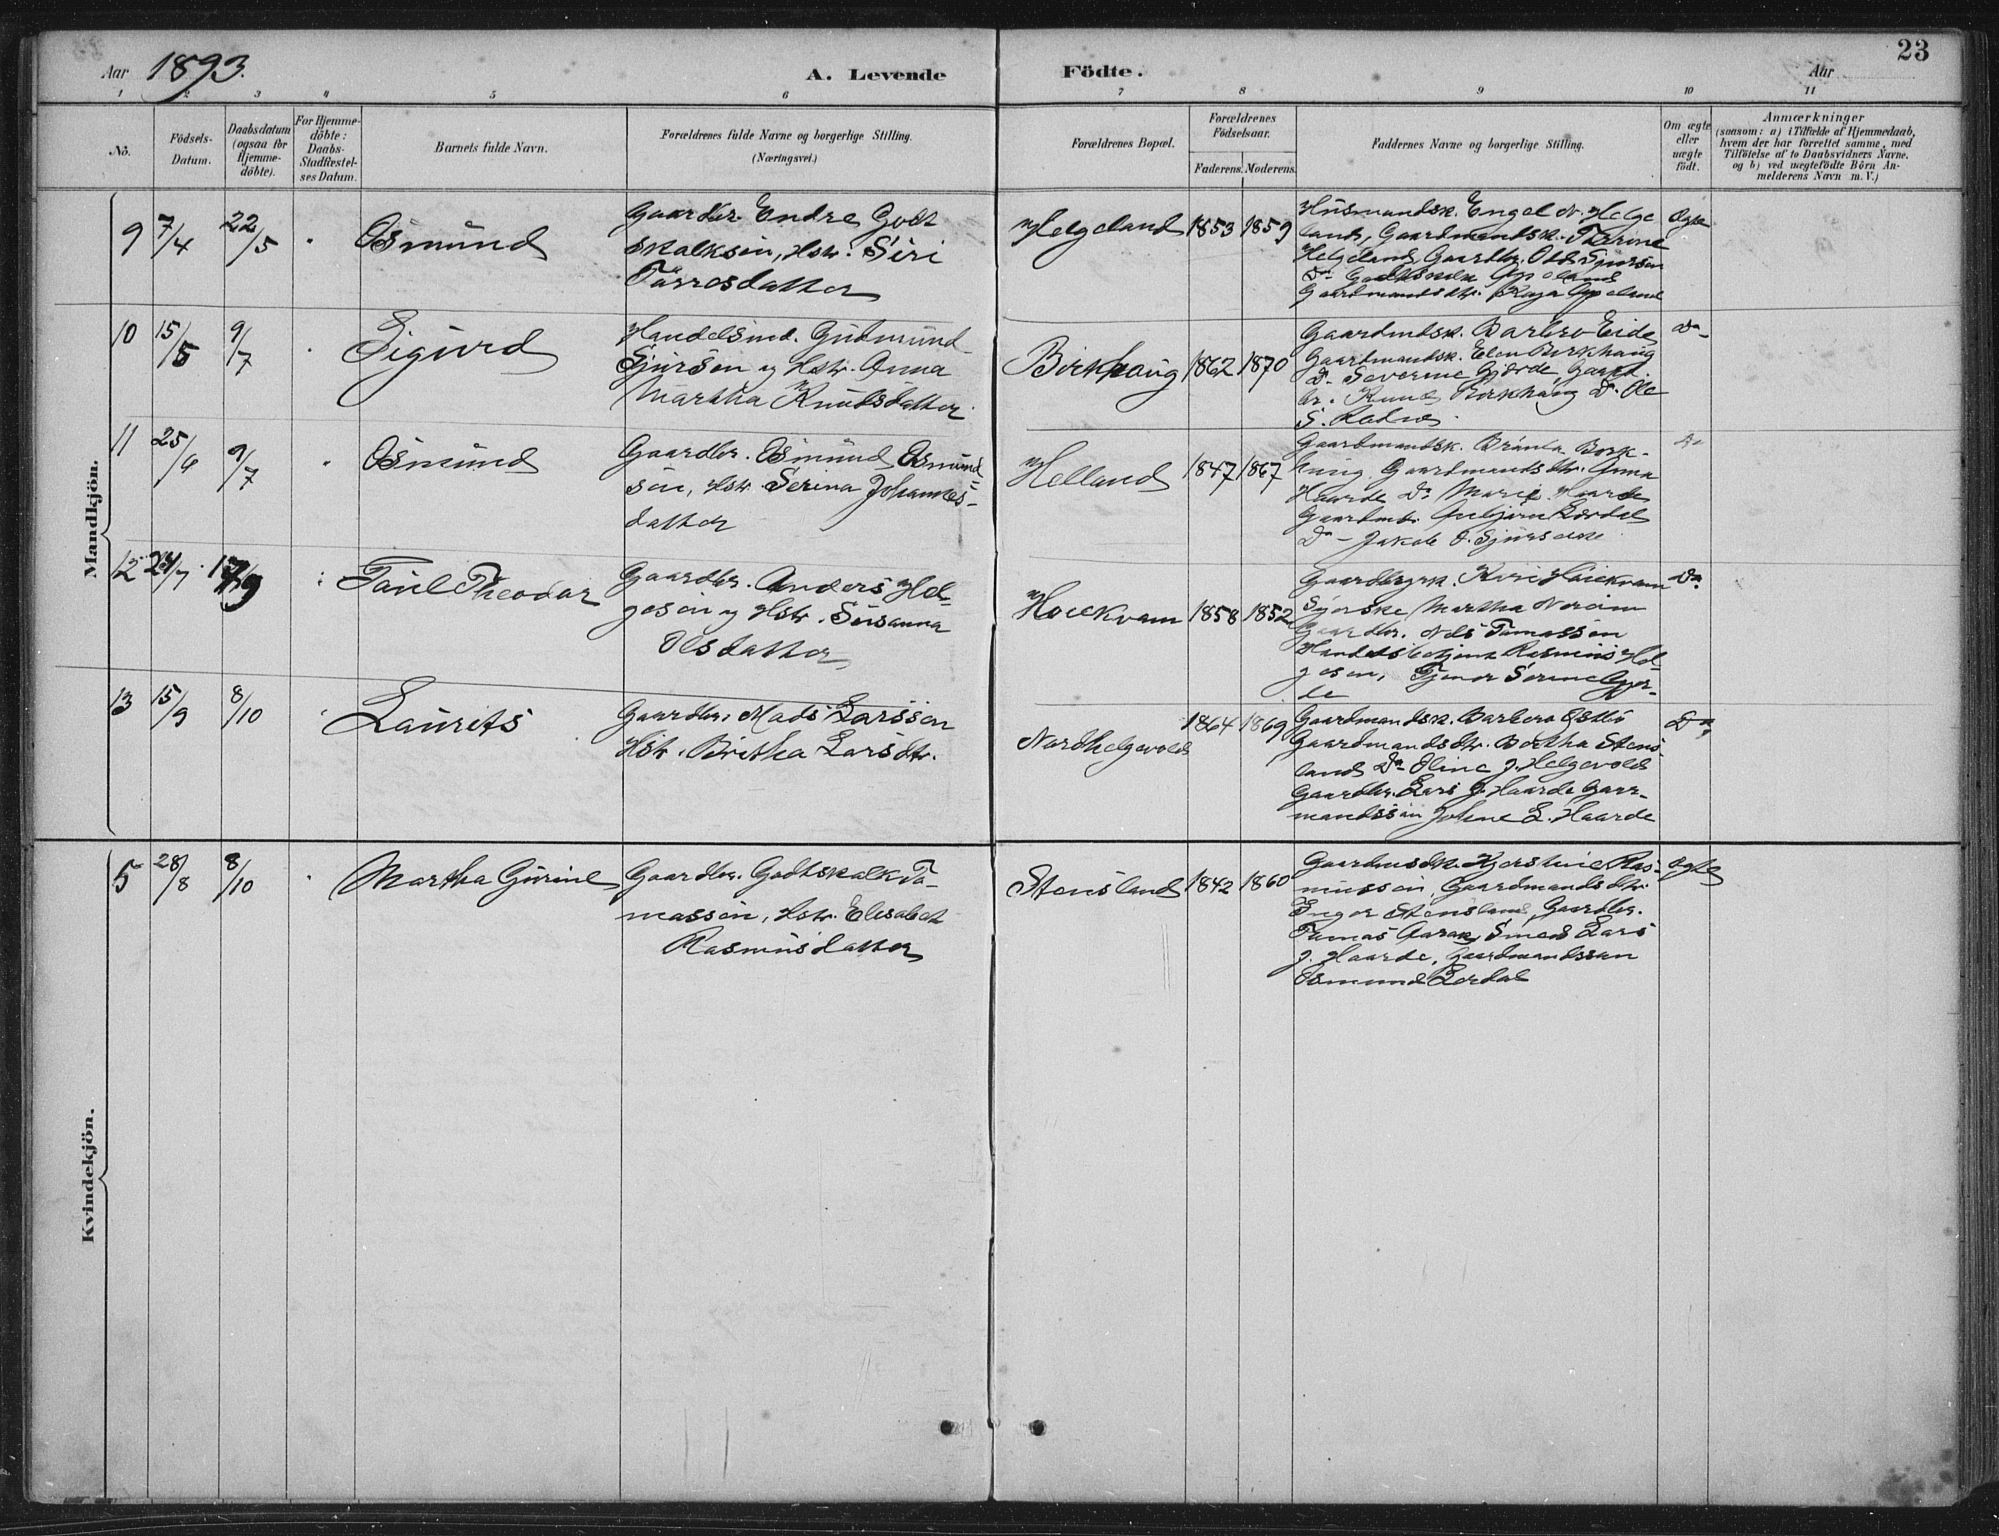 23
Aar 1893. A. Levende Födte. Aar
1 2 3 4 5 6 7 8 9 10 11
No.
Födsels-
Datum.
Daabsdatum
(ogsaa for
Hjemme-
döbte).
For Hjemme-
döbte:
Daabs-
Stadfæstel-
ses Datum.
Barnets fulde Navn.
Forældrenes fulde Navne og borgerlige Stilling.
(Næringsvei.)
Forældrenes Bopæl.
Forældrenes
Födselsaar.
Faderens. Moderens.
Faddernes Navne og borgerlige Stilling.
Om ægte
eller
uægte
födt.
Anmærkninger
(saasom: a) i Tilfælde af Hjemmedaab,
hvem der har forrettet samme, med
Tilföielse af to Daabsvidners Navne,
og b) ved uægtefödte Börn An-
melderens Navn m. V.)
Mandkjön.
9 7/4 22/5 Osmund
Gaardbr. Endre Godt
skalksen, Hstr. Siri
Tørresdatter
Helgeland 1853 1859
Husmandsk. Engel N. Helge
land, Gaardmandsk. Thrine
Helgeland, Gaardbr.
Do Godtskalk Opeland
Gaardmandsdtr. Kaja Opeland
Ægte
10 15/5 9/7 Sigurd
Handelsmd. Gudmund
Sjursen og Hstr. Anna
Martha Knudsdatter
Birkhaug 1862 1870
Gaardmdsk. Barbro Eide
Gaardmandsk. Elen Birkhaug
Do Severine Gjerde, Gaard
br. Knud Birkhaug Do Ole
S.
Do
11 25/ 9/7 Osmund
Gaardbr. Osmund Osmund=
sen, Hstr. Serina Johannes=
datter
Helland 1847 1867
Gaardmandsk. Brünla Birk-
haug Gaardmandsdtr. Anna
Haarde Do Marie Haarde
Gaardmbr. Anbjørn Lærdal
Do Jakob O.
Do
12 24/7 17/9 Paul Theodor
Gaardbr. Anders Hel=
gesen og Hstr. Susanna
Olsdatter
Hoiekvam 1858 1852
Gaardbrgrk. Kari Hoiekvam
Martha
Gaardbr. Nels Tomassen
Handelsbetjent Rasmus Hel=
gesen, Tjener Serine Gjer-
de
Do
13 15/9 8/10 Laurits
Gaardbr. Mads Larssen
Hstr. Britha Larsdtr.
Nordhelgevold 1864 1869
Gaardmandsk. Barbero Østbø
Gaardmandsdtr. Bertha Stens=
land Do Oline J. Helgevold
Gaardbr. Lars J. Haarde Gaar-
mandssøn Johne L. Haarde
Do
Kvindekjön.
5 28/8 8/10 Martha Gurine
Gaardbr. Godtskalk To-
massen, Hstr. Elisabet
Rasmusdatter
Stensland 1842 1860
Gaardmdsk. Kjerstine Ras-
mussen, Gaardmandsdtr.
Inger Stensland, Gaardbr.
Tomas Aarak, Smed Lars
J. Haarde, Gaardmandssøn
Osmund Lærdal
ægte